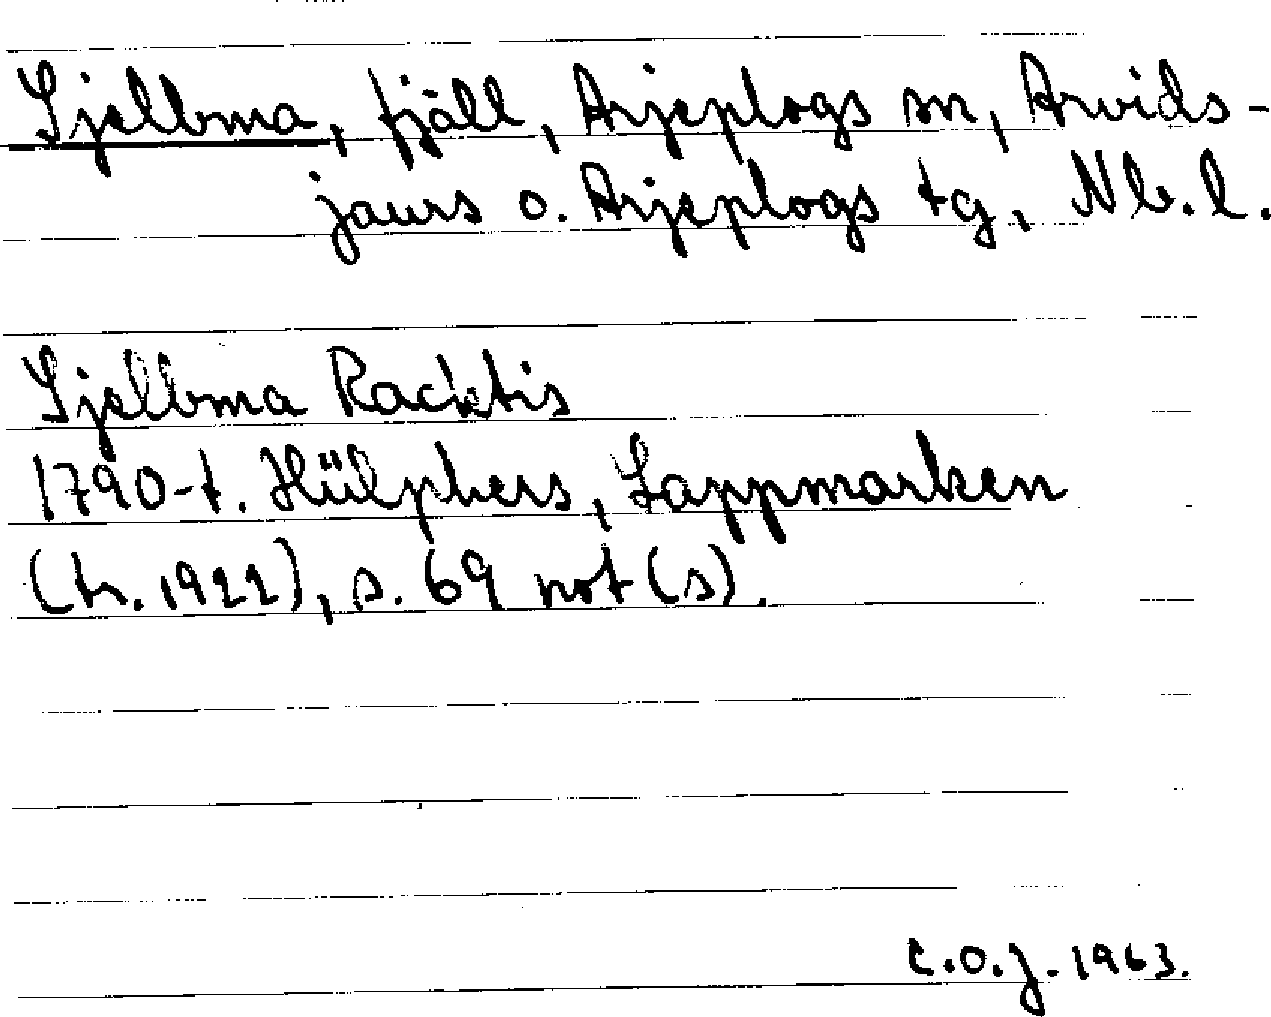 Sjelbma, fjäll, Arjeplogs sn, Arvids-
jaurs o. Arjeplogs tg, Nb.l.
Sjelbma Racktis
1790-t. Hülphers, Lappmarken
(tr. 1922), s. 69 not (s).
C.O.J. 1963.